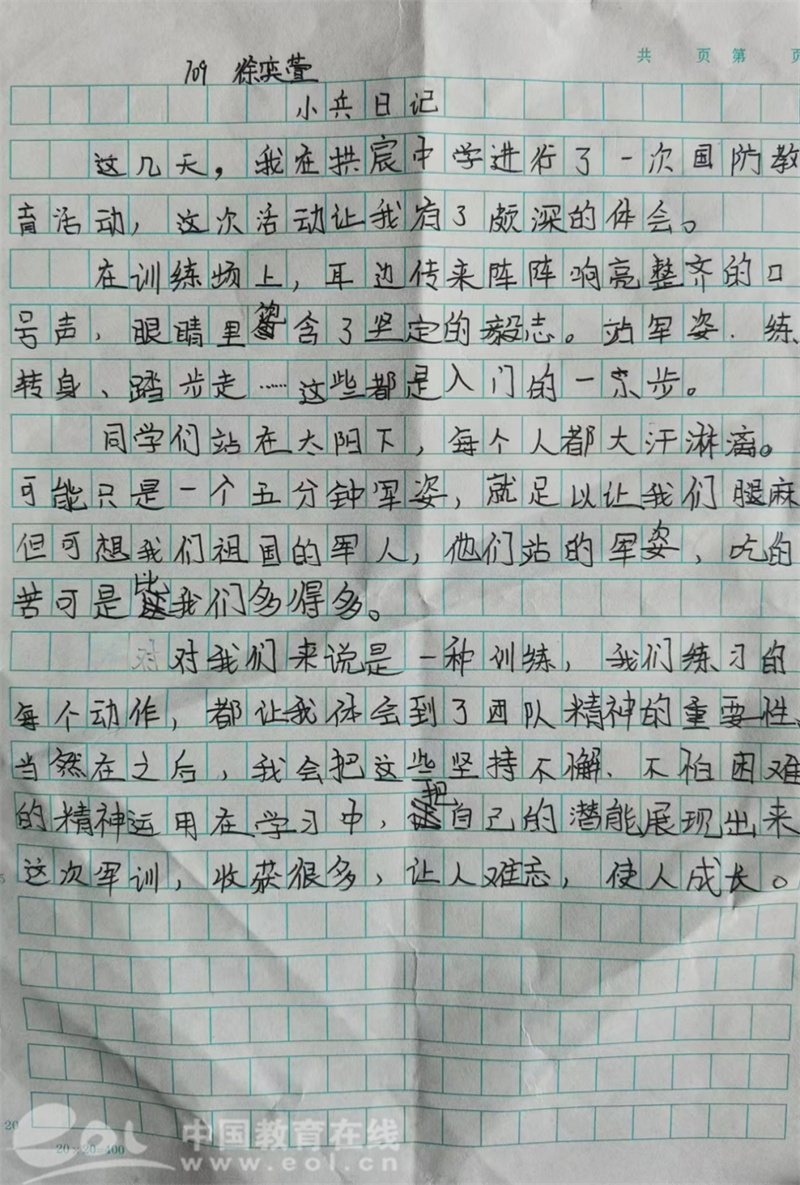 共 页 第 页
709 徐奕萱
小兵日记
这几天，我在拱宸中学进行了一次国防教
育活动，这次活动让我有了颇深的体会。
在训练场上，耳边传来阵阵响亮整齐的口
号声，眼睛里包含了坚定的毅志。站军姿、练
转身、踏步走……这些都是入门的一点步。
同学们站在太阳下，每个人都大汗淋漓。
可能只是一个五分钟军姿，就足以让我们腿麻
但可想我们祖国的军人，他们站的军姿，吃的
苦可是比我们多得多。
对我们来说是一种训练，我们练习的
每个动作，都让我体会到了团队精神的重要性。
当然在之后，我会把这些坚持不懈、不怕困难
的精神运用在学习中，把自己的潜能展现出来
这次军训，收获很多，让人难忘，使人成长。
20×20=400
eol 中国教育在线
www.eol.cn